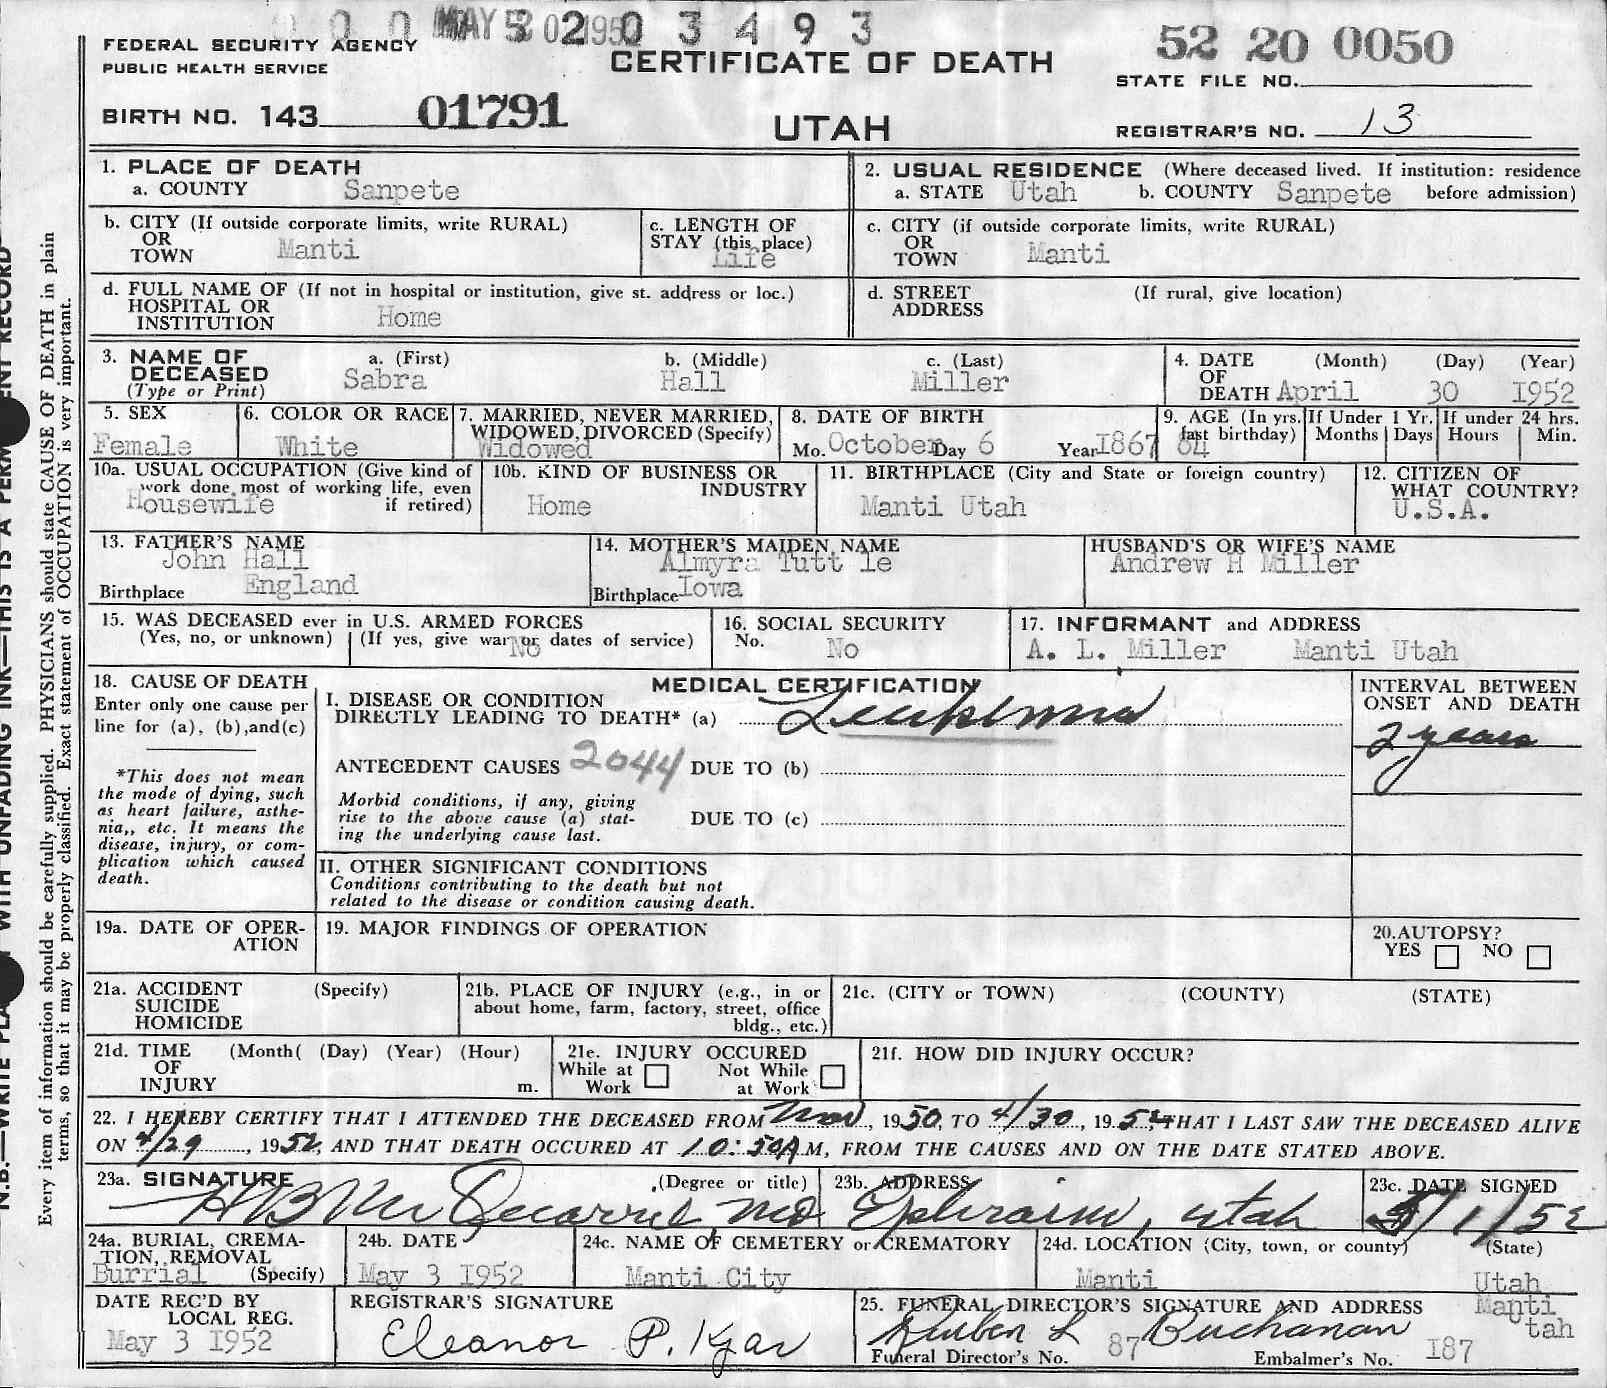 MAY 20 1952 0 3 4 9 3
52 20 0050
FEDERAL SECURITY AGENCY
PUBLIC HEALTH SERVICE
CERTIFICATE OF DEATH
STATE FILE NO.
BIRTH NO. 143 01791
UTAH
REGISTRAR'S NO. 13
1. PLACE OF DEATH
a. COUNTY Sanpete
2. USUAL RESIDENCE (Where deceased lived. If institution: residence
a. STATE Utah b. COUNTY Sanpete before admission)
b. CITY (If outside corporate limits, write RURAL)
OR
TOWN Manti
c. LENGTH OF
STAY (this place)
Life
c. CITY (if outside corporate limits, write RURAL)
OR
TOWN Manti
d. FULL NAME OF (If not in hospital or institution, give st. address or loc.)
HOSPITAL OR
INSTITUTION Home
d. STREET (If rural, give location)
ADDRESS
3. NAME OF
DECEASED
(Type or Print)
a. (First) b. (Middle) c. (Last)
Sabra Hall Miller
4. DATE (Month) (Day) (Year)
OF
DEATH April 30 1952
5. SEX
Female
6. COLOR OR RACE
White
7. MARRIED, NEVER MARRIED,
WIDOWED, DIVORCED (Specify)
Widowed
8. DATE OF BIRTH
Mo. October Day 6 Year 1867
9. AGE (In yrs.
last birthday)
84
If Under 1 Yr.
Months Days
If under 24 hrs.
Hours Min.
10a. USUAL OCCUPATION (Give kind of
work done most of working life, even
Housewife if retired)
10b. KIND OF BUSINESS OR
INDUSTRY
Home
11. BIRTHPLACE (City and State or foreign country)
Manti Utah
12. CITIZEN OF
WHAT COUNTRY?
U.S.A.
13. FATHER'S NAME
John Hall
Birthplace England
14. MOTHER'S MAIDEN NAME
Almyra Tutt le
Birthplace Iowa
HUSBAND'S OR WIFE'S NAME
Andrew H Miller
15. WAS DECEASED ever in U.S. ARMED FORCES
(Yes, no, or unknown) (If yes, give war or dates of service)
No
16. SOCIAL SECURITY
No. No
17. INFORMANT and ADDRESS
A. L. Miller Manti Utah
18. CAUSE OF DEATH
Enter only one cause per
line for (a), (b),and(c)
*This does not mean
the mode of dying, such
as heart failure, asthe-
nia,, etc. It means the
disease, injury, or com-
plication which caused
death.
MEDICAL CERTIFICATION
I. DISEASE OR CONDITION
DIRECTLY LEADING TO DEATH* (a) Leukemia
ANTECEDENT CAUSES 2044 DUE TO (b)
Morbid conditions, if any, giving
rise to the above cause (a) stat-
ing the underlying cause last.
DUE TO (c)
INTERVAL BETWEEN
ONSET AND DEATH
2 years
II. OTHER SIGNIFICANT CONDITIONS
Conditions contributing to the death but not
related to the disease or condition causing death.
19a. DATE OF OPER-
ATION
19. MAJOR FINDINGS OF OPERATION
20.AUTOPSY?
YES NO
21a. ACCIDENT (Specify)
SUICIDE
HOMICIDE
21b. PLACE OF INJURY (e.g., in or
about home, farm, factory, street, office
bldg., etc.)
21c. (CITY or TOWN) (COUNTY) (STATE)
21d. TIME (Month( (Day) (Year) (Hour)
OF
INJURY m.
21e. INJURY OCCURED
While at Not While
Work at Work
21f. HOW DID INJURY OCCUR?
22. I HEREBY CERTIFY THAT I ATTENDED THE DECEASED FROM Nov, 1950, TO 4/30, 1952, THAT I LAST SAW THE DECEASED ALIVE
ON 4/29, 1952, AND THAT DEATH OCCURED AT 10:50A M, FROM THE CAUSES AND ON THE DATE STATED ABOVE.
23a. SIGNATURE (Degree or title)
MD
23b. ADDRESS
Ephraim, Utah
23c. DATE SIGNED
5/1/52
24a. BURIAL, CREMA-
TION, REMOVAL
Burrial (Specify)
24b. DATE
May 3 1952
24c. NAME OF CEMETERY or CREMATORY
Manti City
24d. LOCATION (City, town, or county) (State)
Manti Utah
DATE REC'D BY
LOCAL REG.
May 3 1952
REGISTRAR'S SIGNATURE
Eleanor P. Kjar
25. FUNERAL DIRECTOR'S SIGNATURE AND ADDRESS Manti
Ruben L Buchanan tah
Funeral Director's No. 87 Embalmer's No. 187
N.B.—WRITE PLA WITH UNFADING INK—THIS IS A PERM ENT RECORD
Every item of information should be carefully supplied. PHYSICIANS should state CAUSE OF DEATH in plain
terms, so that it may be properly classified. Exact statement of OCCUPATION is very important.